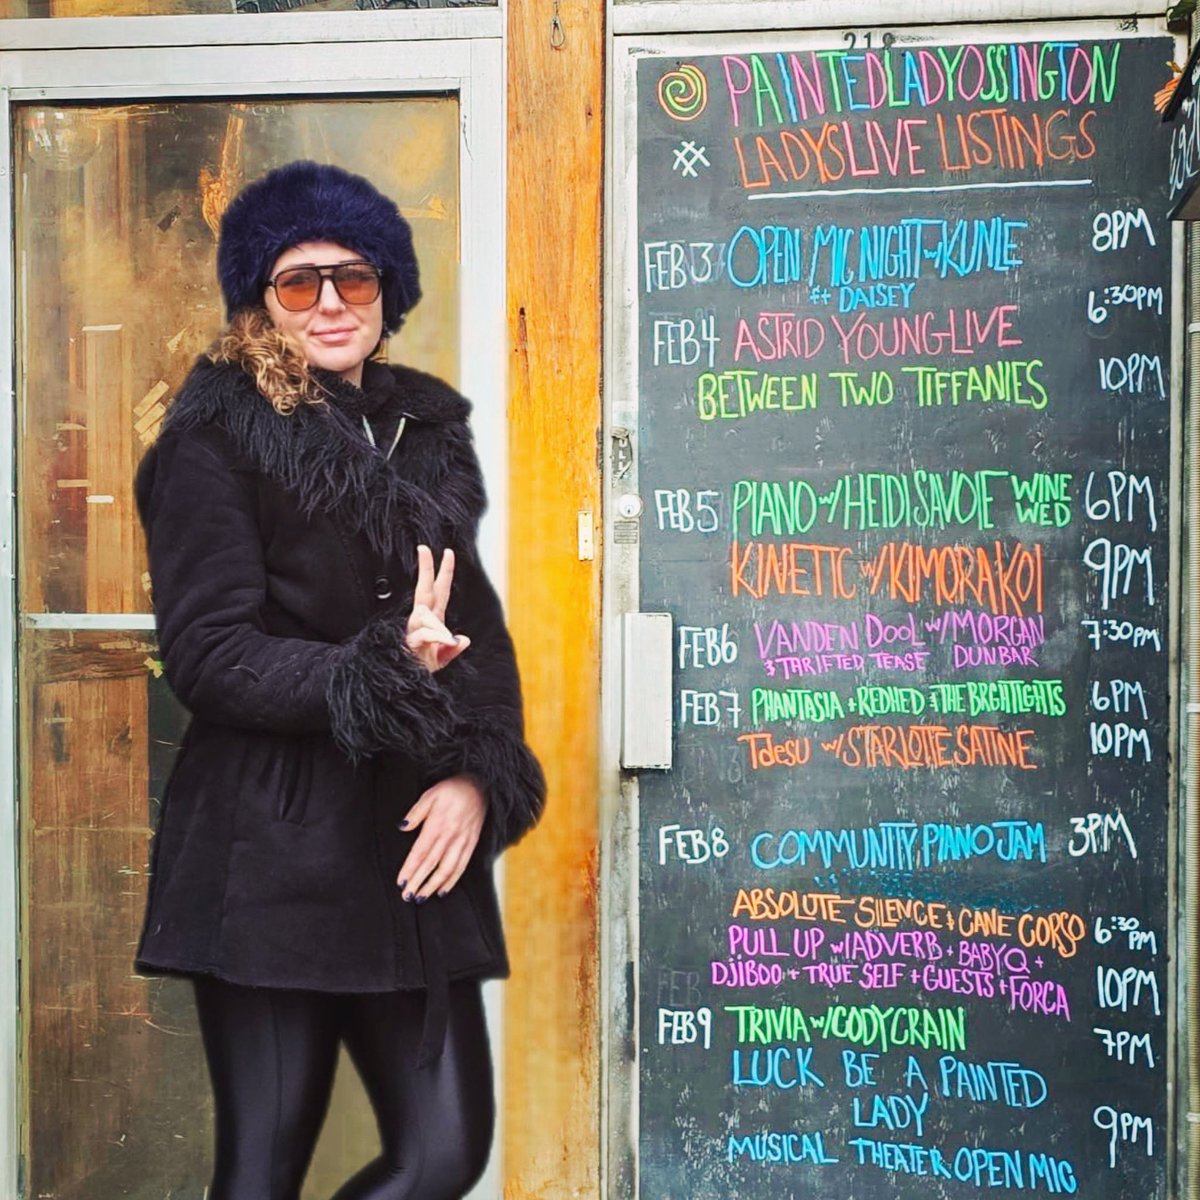 218
PAINTEDLADYOSSINGTON
LADYSLIVE LISTINGS
FEB 3 OPEN MIC NIGHT w/KUNLE 8PM
Ft DAISEY
FEB 4 ASTRID YOUNG-LIVE 6:30PM
BETWEEN TWO TIFFANIES 10PM
FEB 5 PIANO w/HEIDI SAVOIE WINE WED 6PM
KINETIC w/KIMORA KOI 9PM
FEB 6 VANDEN DOOL w/MORGAN 7:30PM
& TARIFTED TEASE DUNBAR
FEB 7 PHANTASIA + REDHED & THE BRGHTLGHTS 6PM
Taesu w/STARLOTTE SATINE 10PM
FEB 8 COMMUNITY PIANO JAM 3PM
ABSOLUTE SILENCE & CANE CORSO 6:30PM
PULL UP w/ADVERB + BABY Q +
DJIBOO + TRUE SELF + GUESTS + FORCA 10PM
FEB 9 TRIVIA w/CODY CRAIN 7PM
LUCK BE A PAINTED
LADY 9PM
MUSICAL THEATER OPEN MIC